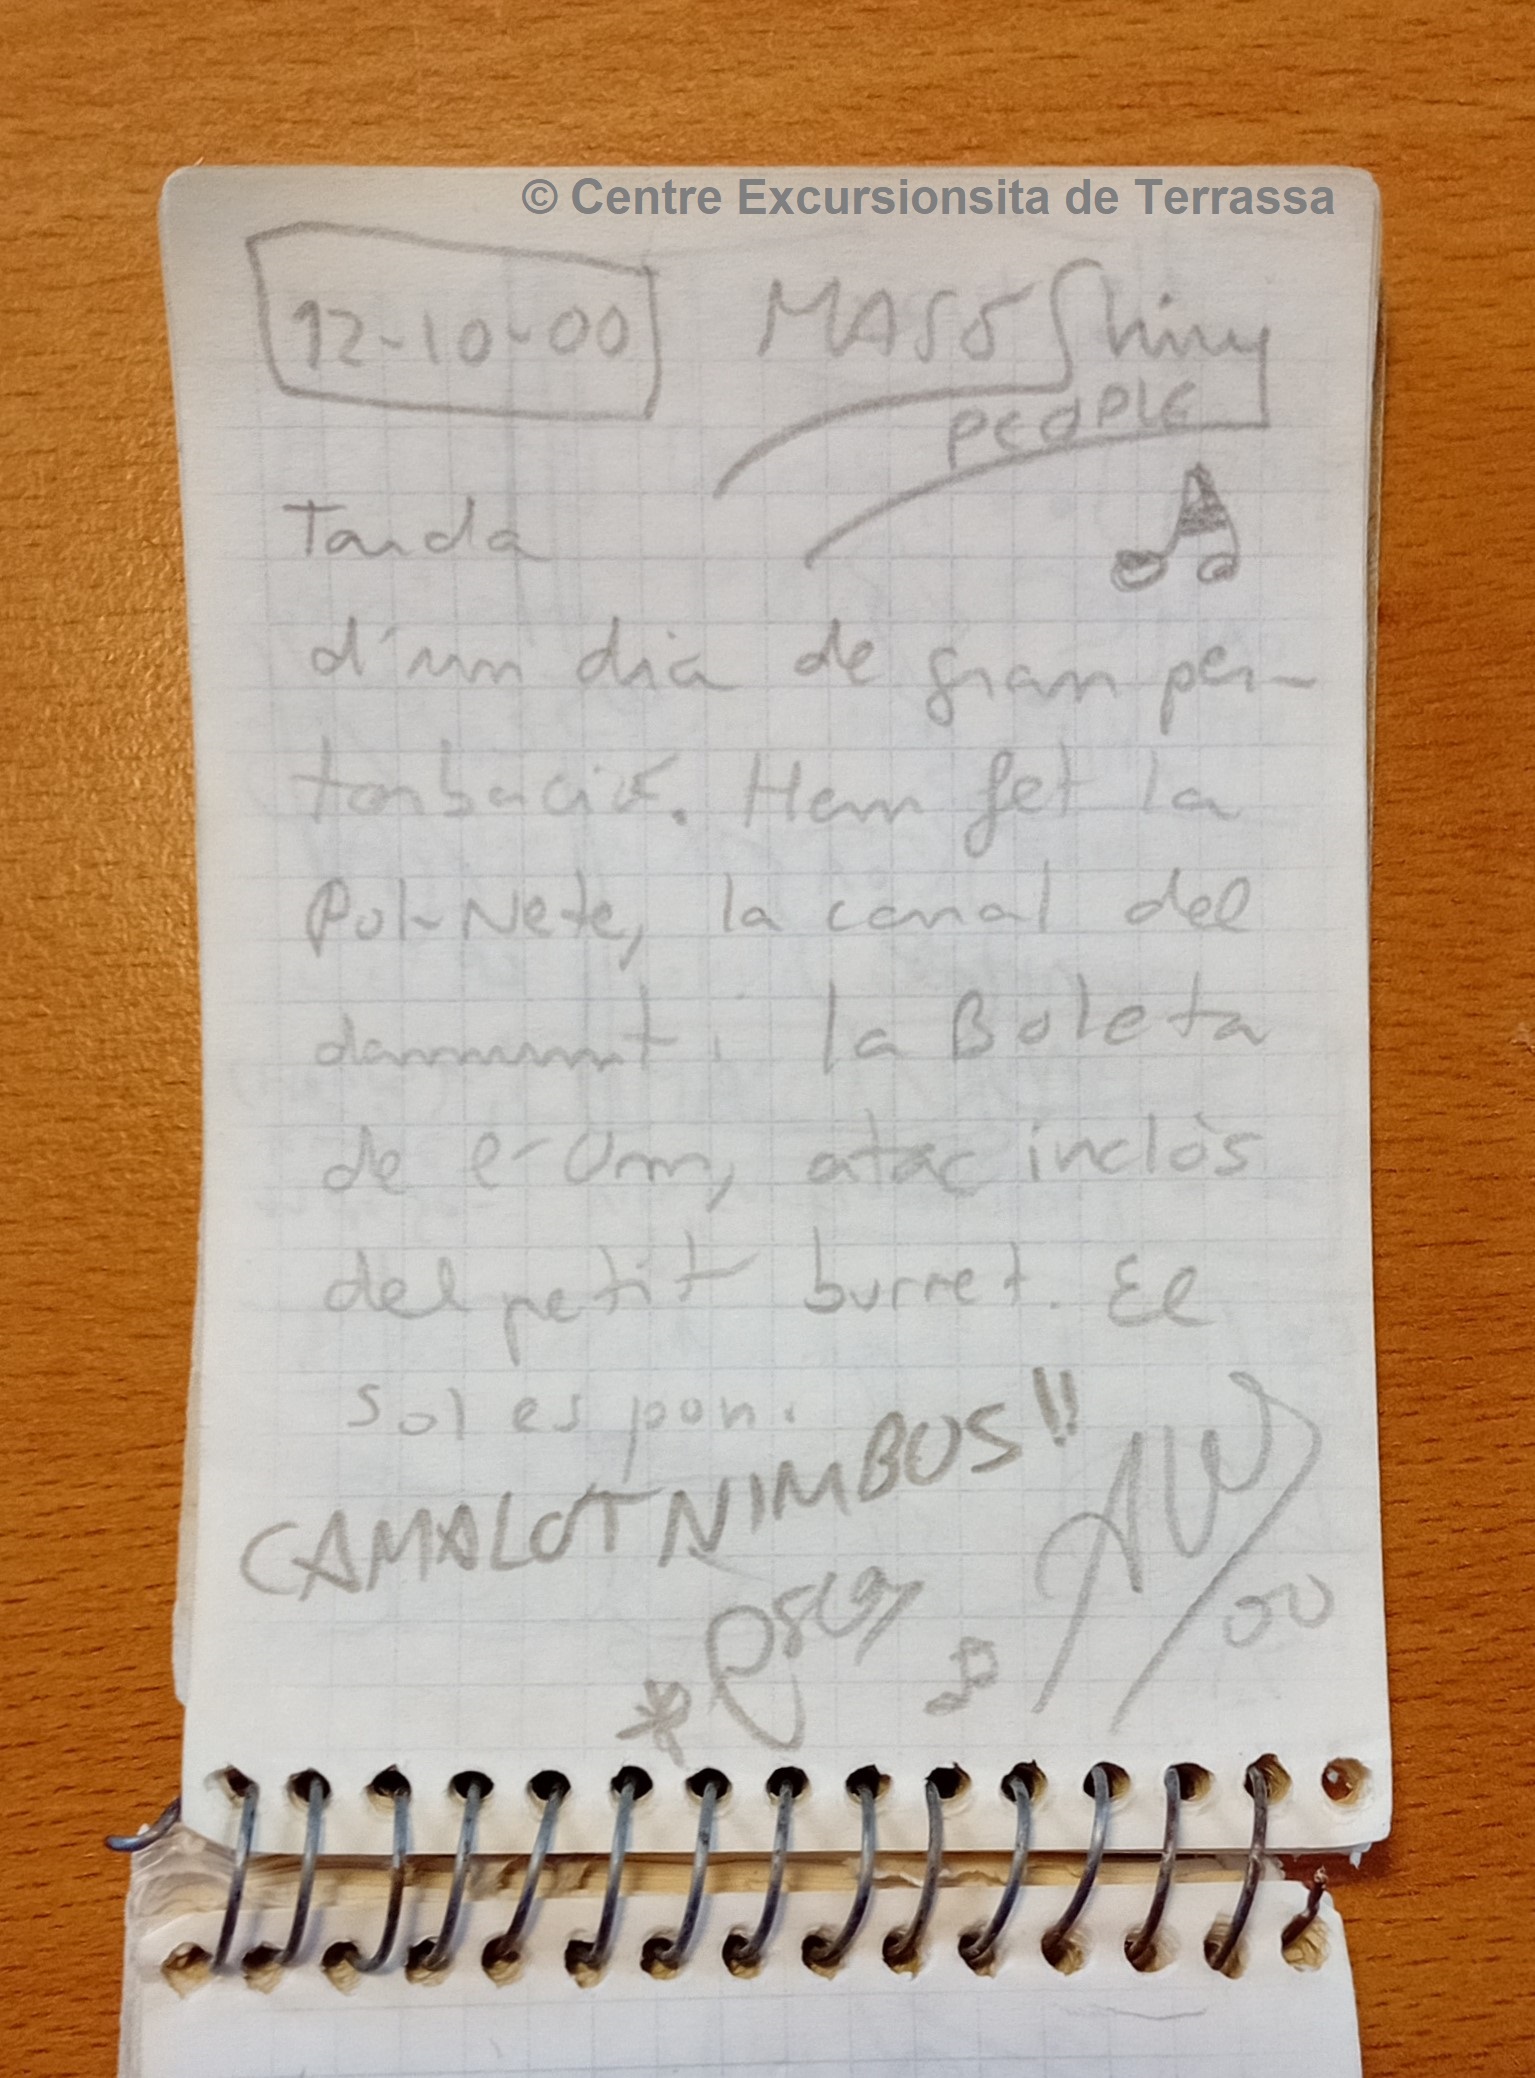 © Centre Excursionsita de Terrassa
12-10-00
MASÓ Shiny
PEOPLE
Tarda
d'un dia de gran per-
torbació. Hem fet la
Pol-Nete, la canal del
dammunt i la Boleta
de l'Om, atac inclòs
del petit burret. El
sol es pon.
CAMALOT NIMBUS!!
00